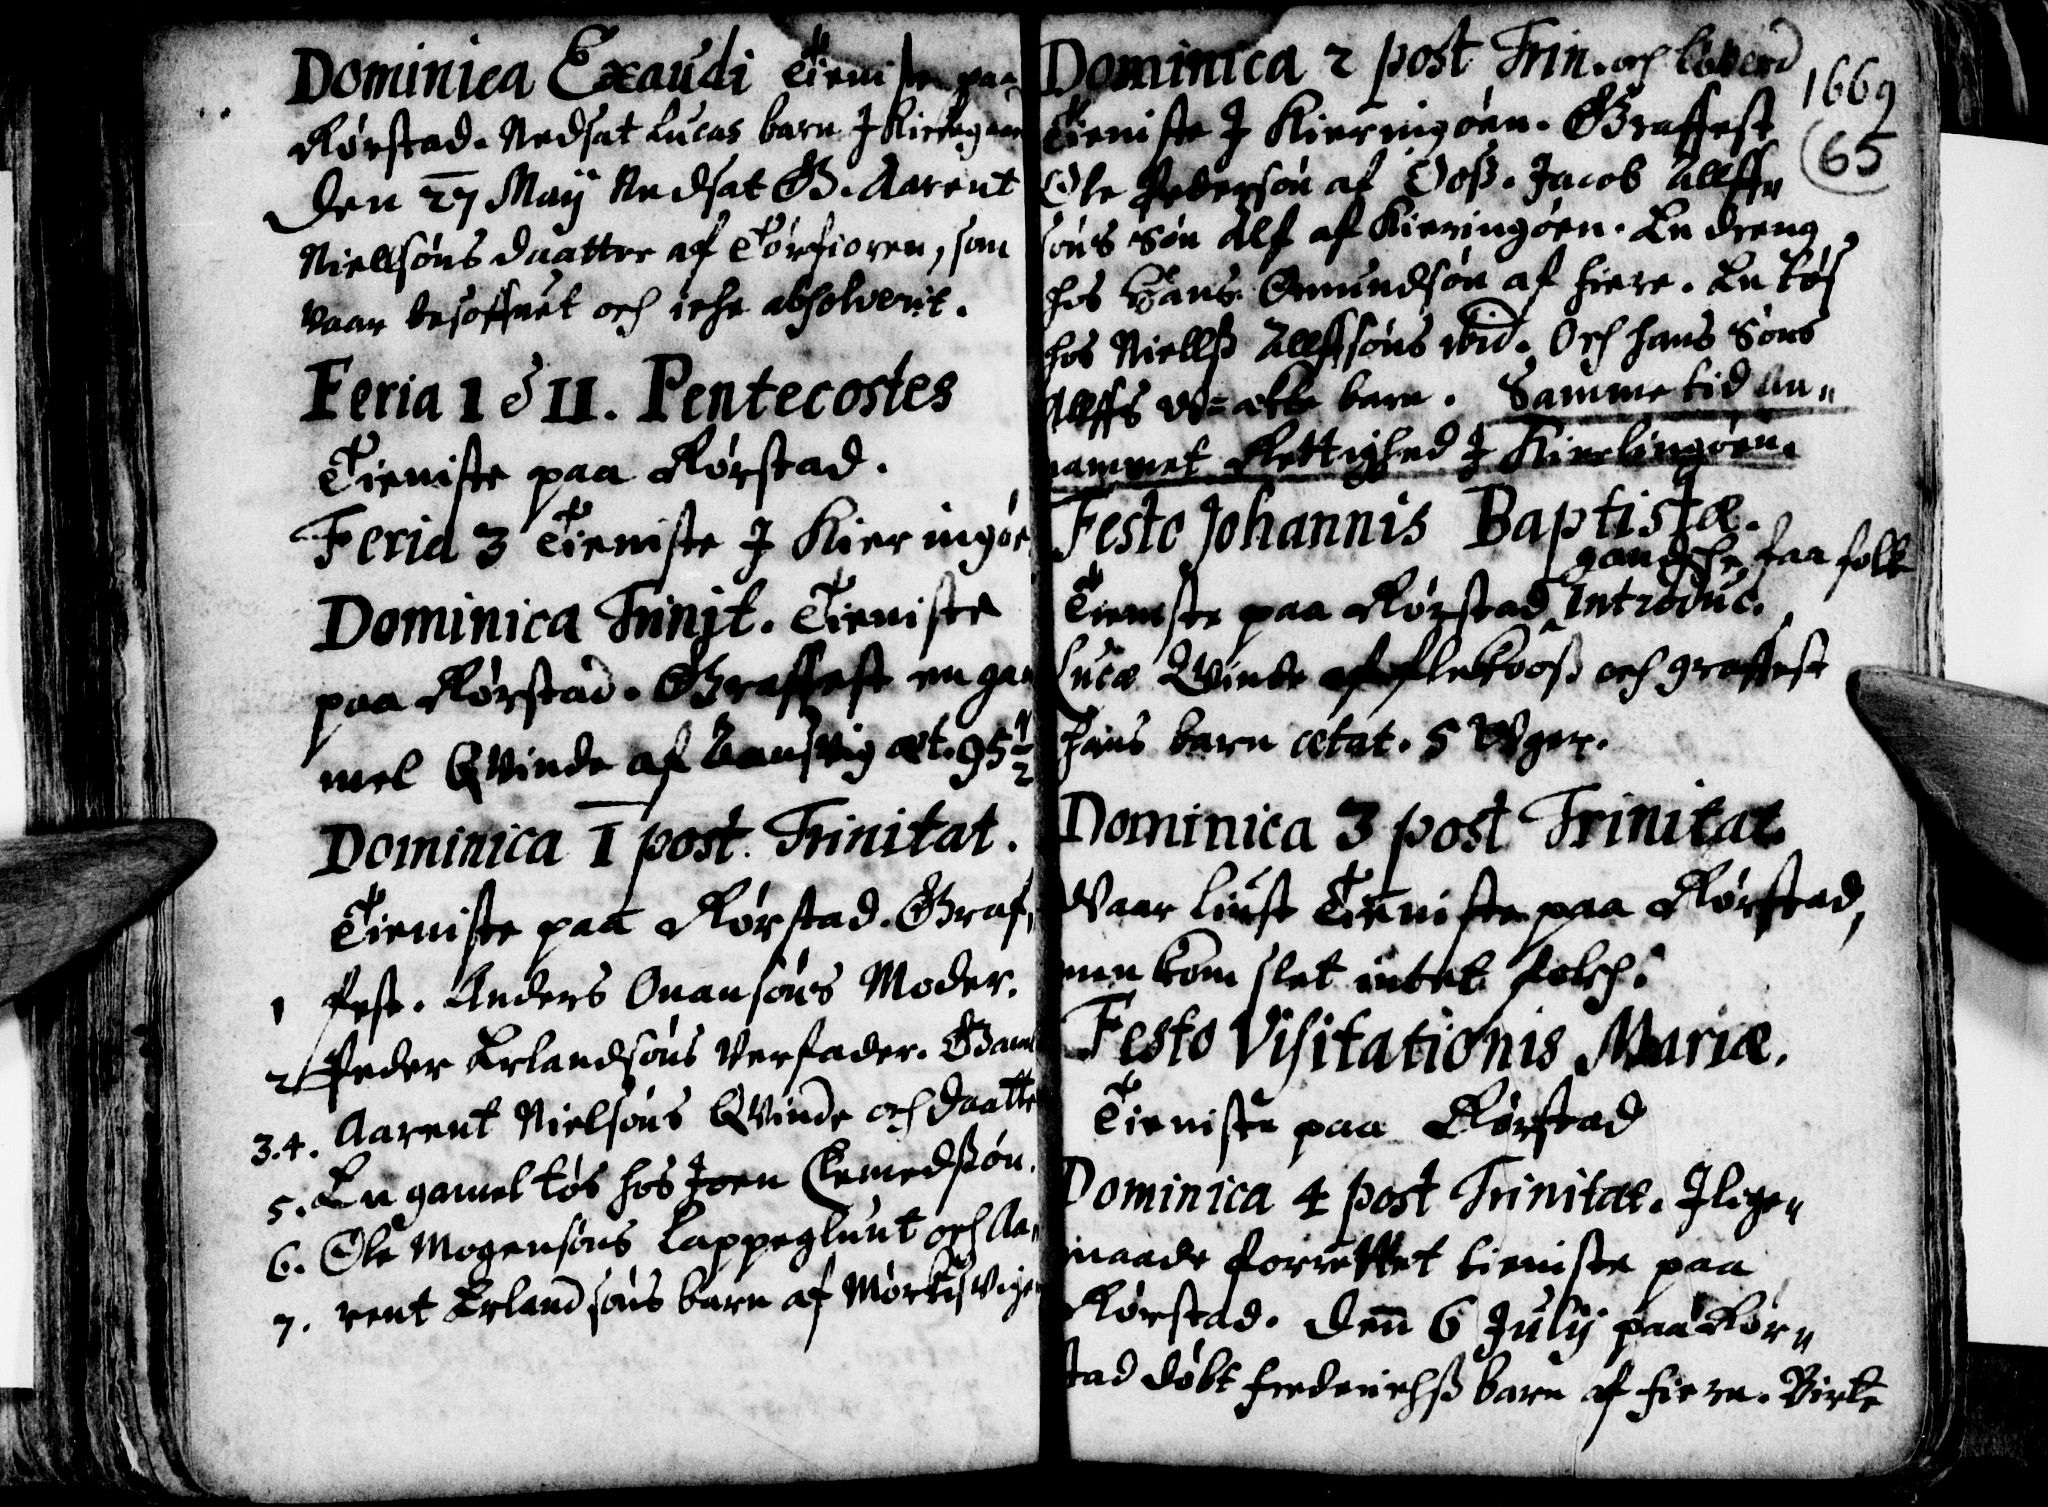 Dominica Exaudi Tieniste paa
Rørstad. Nedsat Lucas barn J Kirkegaar
Den 27 Maÿ Nedsat G. Aarent
Niellsøns daatter af Tørfioren, som
vaar besoffuet och iche absolverit.
Feria I & II. Pentecostes
Tieniste paa Rørstad.
Feria 3 Tieniste J Kieringøe
Dominica Trinit. Tieniste
paa Rørstad. Graffest en ga
mel Qvinde af æt. 95 1/2
Dominica I post. Trinitat.
Tieniste paa Rørstad. Graf,
1 fest. Anders Onansøns Moder.
2 Peder Erlandsøns Verfader. Gaml
3.4. Aarent Nielsøns Qvinde och daatte
5. En gamel tøs hos Joen Clemedsøn.
6. Ole Mogensøns Lappeglunt och Aa,
7. rent Erlandsøns barn af Mørkisvige
Dominica 2 post Trin. och Løverd
1669
65
Tieniste J Kieringøen. Graffest
Ole Pedersøn af Voß. Jacob Allff,,
søns Søn Alf af Kieringøen. En dreng
hos Hans Omundsøn af Fiere. En tøs
hos Niellß Allffsøns ibid. Och hans Søns
Allffs barn. Samme tid An,,
nammet Rettighed J Kierlingøen.
Festo Johannis Baptistæ.
gandske faa folk
Tieniste paa Rørstad Introduc.
Lucæ Qvinde af och graffest
hans barn ætat. 5 Vger.
Dominica 3 post Trinitat
Vaar liust Tieniste paa Rørstad,
men kom slet intet folch.
Festo Visitationis Mariæ.
Tieniste paa Rørstad
Dominica 4 post Trinitat. Jlige,,
maade forrettet tieniste paa
Rørstad. Den 6 Julÿ paa Rør,,
stad døbt Frederichß barn af Fiere. Birte